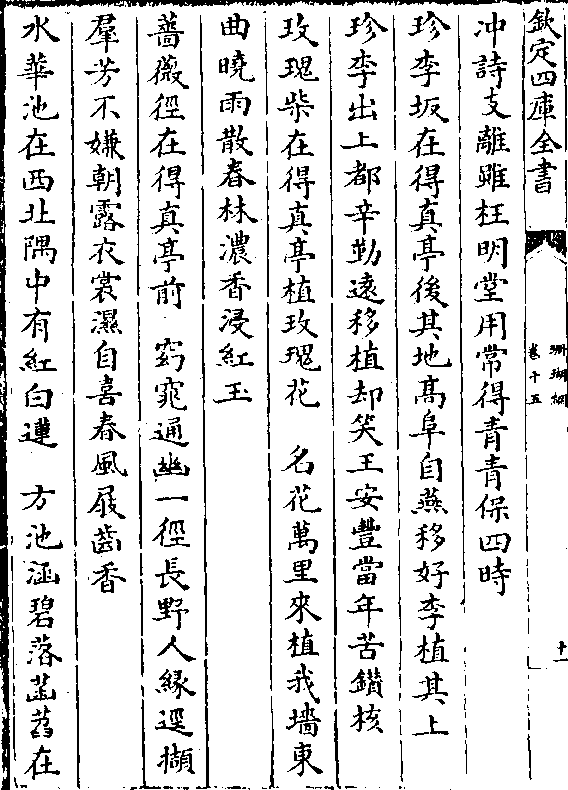 欽定四庫全書
珊瑚網
卷十五
十一
沖詩支離雖枉明堂用常得青青保四時
珍李坂在得真亭後其地髙阜自燕移好李植其上
珍李出上都辛勤遠移植却笑王安豐當年苦鑚核
玫瑰柴在得真亭植玫瑰花　名花萬里來植我墻東
曲曉雨散春林濃香浸紅玉
薔薇徑在得真亭前　窈窕通幽一徑長野人縁逕擷
羣芳不嫌朝露衣裳濕自喜春風屐齒香
水華池在西北隅中有紅白蓮　方池涵碧落菡萏在